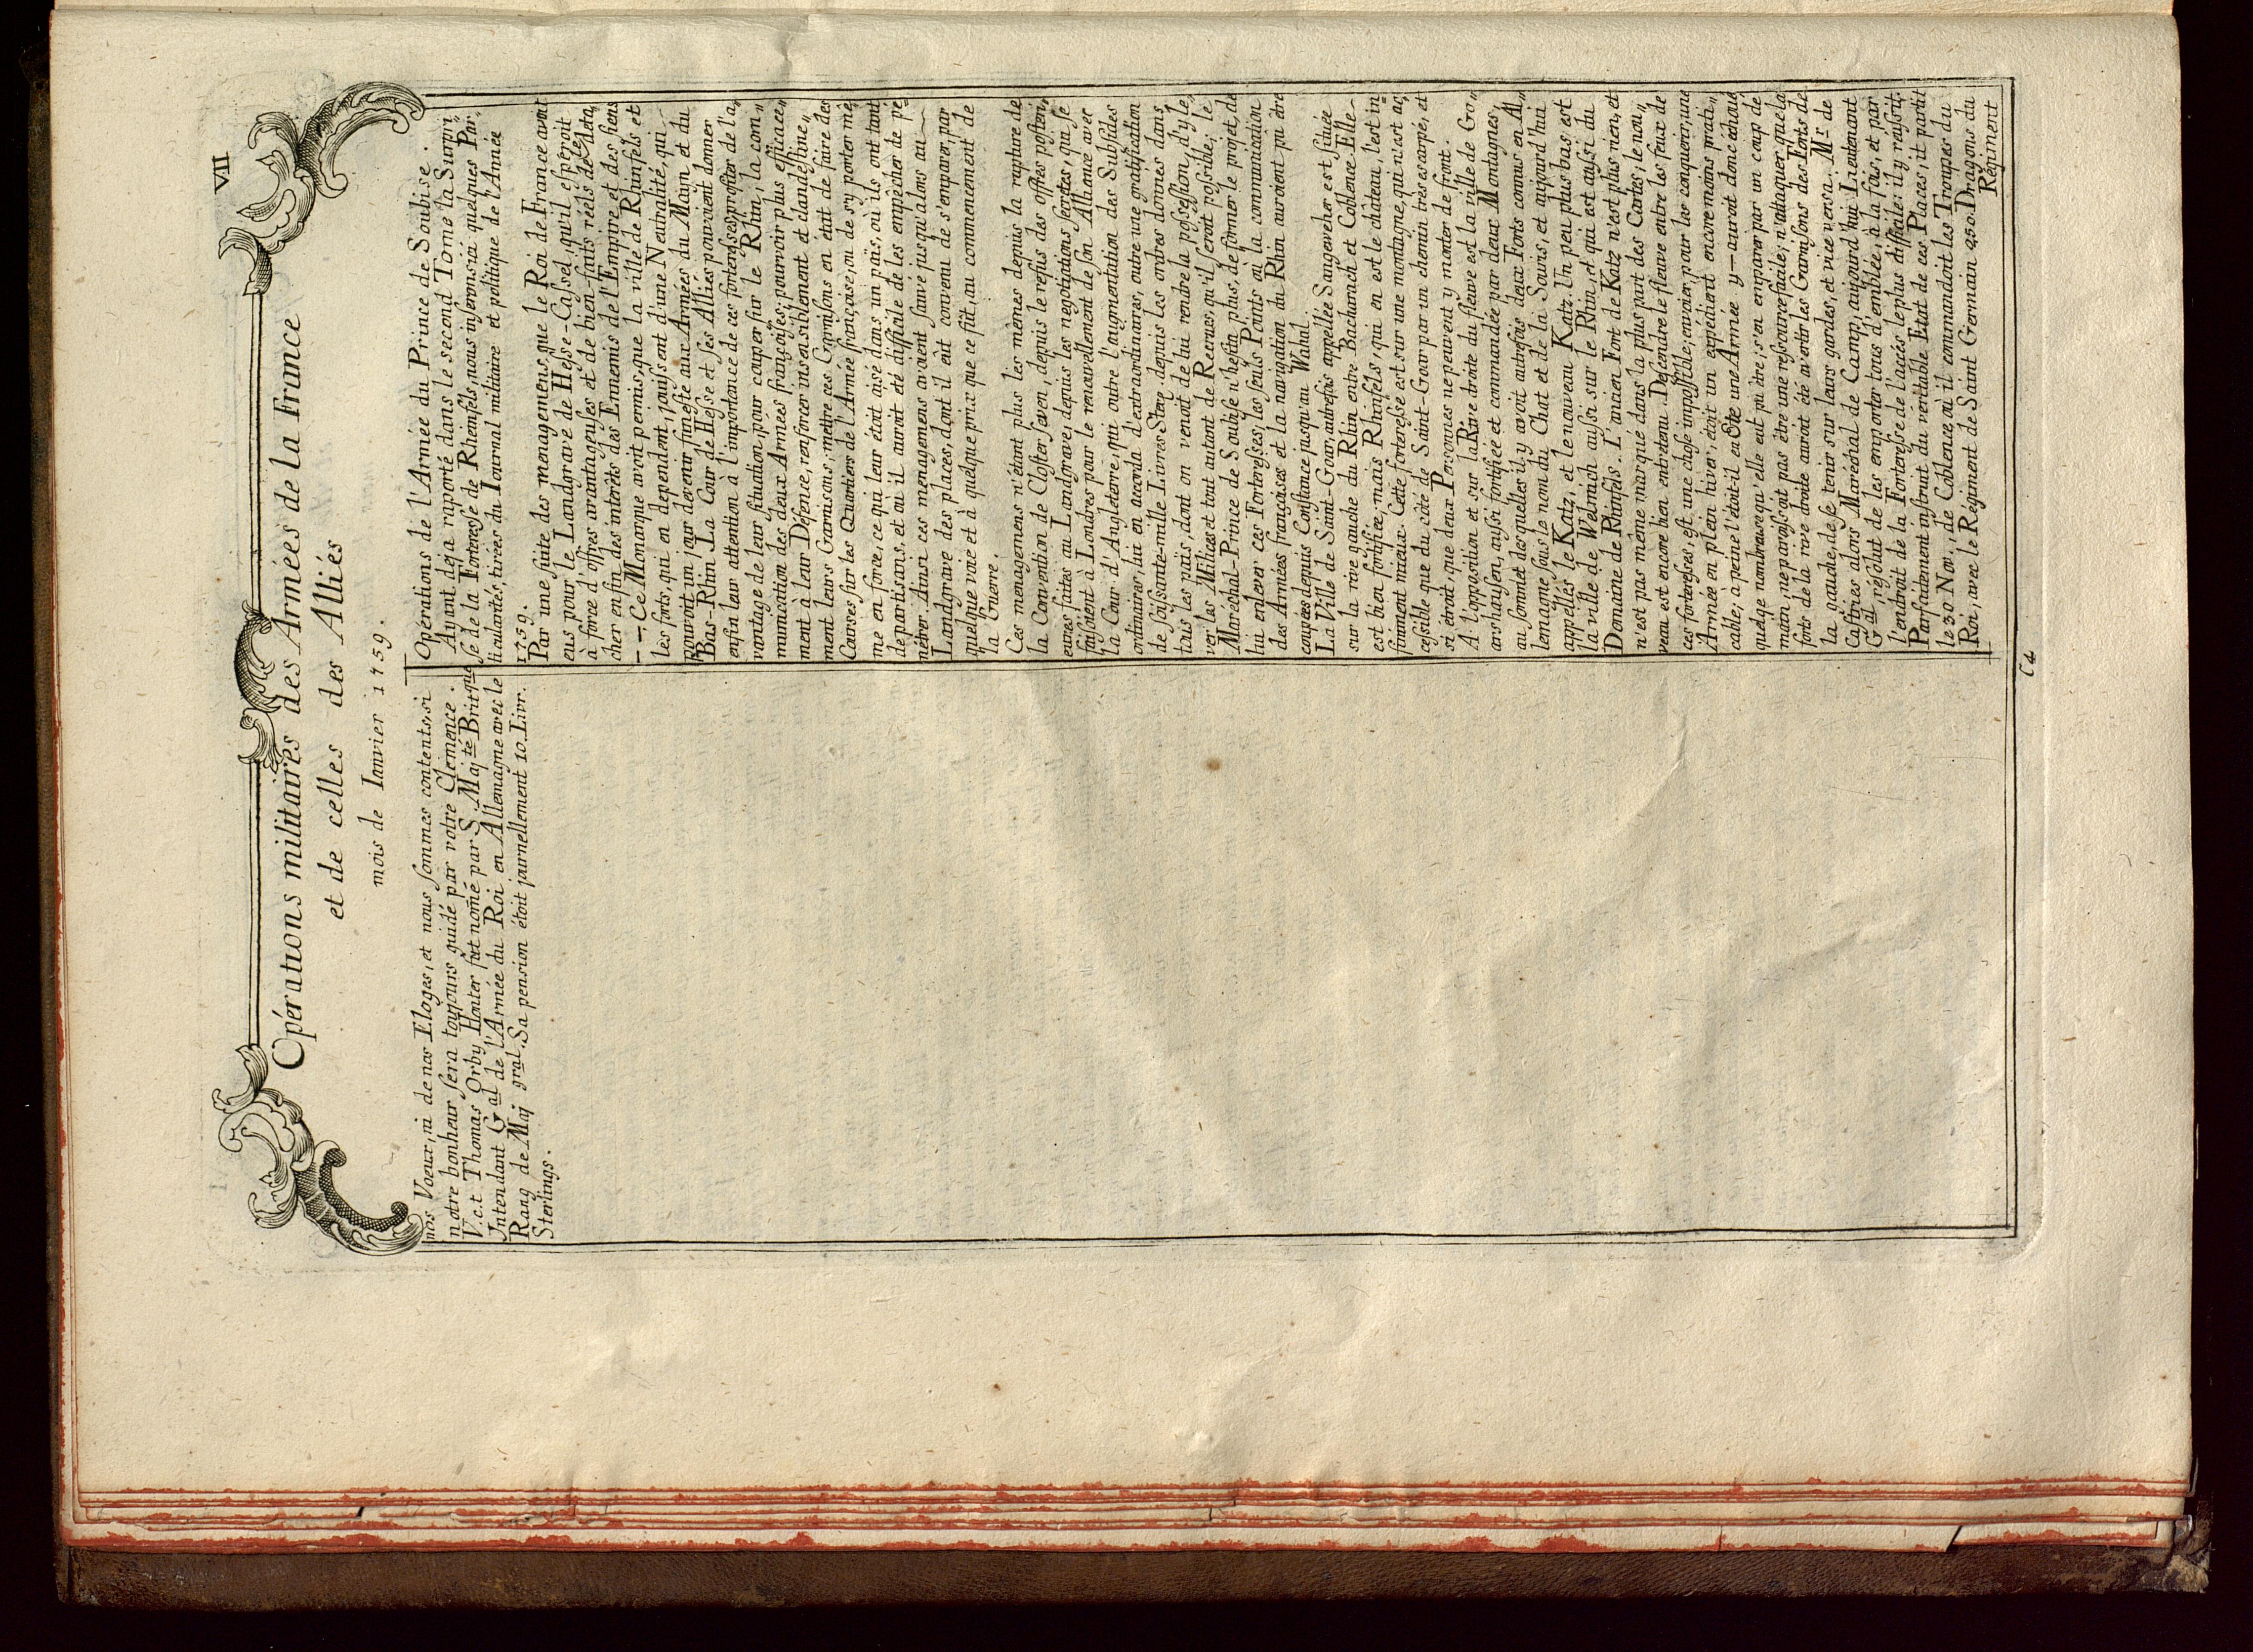 VII
Opérations militaires des Armées de la France
et de celles des Alliés
mois de Ianvier 1759.
nos Voeux, ni de nos Eloges, et nous sommes contents, si
notre bonheur sera toujours guidé par votre Clemence.
V.c.t Thomas Orby Honter fut nomé par S. Maj.té Britque
Intendant Gal de l'Armée du Roi en Allemagne avec le
Rang de Maj gral. Sa pension étoit journellement 10. Livr.
Sterlings.
Opérations de l'Armée du Prince de Soubise.
Ayant deja raporté dans le second Tome la Surpri„
se de la Forteresse de Rheinfels, nous inserons ici quelques Par„
ticularités, tirées du Iournal militaire et politique de l'Année
1759.
Par une suite des menagemens, que le Roi de France avoit
eus pour le Landgrave de Hesse-Cassel, qu'il espéroit
à force d'offres avantageuses et de bien-faits réels de déta„
cher enfin des interêts des Ennemis de l'Empire et des siens
-- Ce Monarque avoit permis, que la ville de Rhinfels et
les forts, qui en dependent, jouissent d'une Neutralité, qui
pouvoit un jour devenir funeste aux Armées du Main et du
Bas-Rhin. La Cour de Hesse et ses Alliés pouvoient donner
enfin leur attention à l'importance de ces forteresses, profiter de l'a„
vantage de leur situation, pour couper sur le Rhin, la com„
munication des deux Armées françoises, pourvoir plus efficace„
ment à leur Défence, renforcer insensiblement et clandestine„
ment leurs Garnisons, mettre ces Garnisons en état de faire des
Courses sur les Quartiers de l'Armée françoise, ou de s'y porter mê„
me en force, ce qui leur étoit aisé dans un païs, où ils ont tant
de partisans, et où il auroit été difficile de les empêcher de pé„
nétrer. Ainsi ces menagemens avoient sauvé jusqu'alors au
Landgrave des places, dont il eût convenu de s'emparer, par
quelque voie et à quelque prix que ce fût, au commencement de
la Guerre.
Ces menagemens n'étant plus les mêmes depuis la rupture de
la Convention de Closter seven, depuis le refus des offres posteri„
eures faites au Landgrave, depuis les negotiations secretes, qui se
faisoient à Londres pour le renouvellement de son Alliance avec
la Cour d'Angleterre, qui outre l'augmentation des Subsides
ordinaires, lui en accorda d'extraordinaires, outre une gratification
de soissante-mille Livres Sterg. depuis les ordres donnés dans
tous les païs, dont on venoit de lui rendre la possession, d'y le„
ver les Milices et tout autant de Recrues, qu'il seroit possible; le
Maréchal-Prince de Soubise n'hesita plus, de former le projet, de
lui enlever ces Forteresses; les seuls Points où la communication
des Armées françoises et la navigation du Rhin auroient pû être
coupées depuis Constance jusqu'au Wahal.
La Ville de Saint-Goar, autrefois appellée Sangeweher est située
sur la rive gauche du Rhin entre Bacharach et Coblence. Elle
est bien fortifiée; mais Rhinfels, qui en est le château, l'est in„
finiment mieux. Cette forteresse est sur une montagne, qui n'est ac„
cessible que du côté de Saint-Goar par un chemin très escarpé, et
si étroit, que deux Personnes ne peuvent y monter de front.
A l'opposition et sur la Rive droite du fleuve est la ville de Go„
arshausen, aussi fortifiée et commandée par deux Montagnes,
au sommet desquelles il y avoit autrefois deux Forts connus en Al„
lemagne sous le nom du Chat et de la Souris, et aujourd'hui
appellés le Katz, et le nouveau Katz. Un peu plus bas est
la ville de Welmich aussi sur le Rhin, et qui est aussi du
Domaine de Rhinfels. L'ancien Fort de Katz n'est plus rien, et
n'est pas même marqué dans la plus part des Cartes; le nou„
veau est encore bien entretenu. Defendre le fleuve entre les feux de
ces forteresses, est une chose impossible; envoier, pour les conquerir, une
Armée en plein hiver, étoit un expédient encore moins prati„
cable; a peine l'étoit-il en Eté une Armée y-auroit donc échoué
quelqe nombreuse qu'elle eut pû être; s'en emparer par un coup de
main, ne paroissoit pas être une ressource facile; n'attaquer que la
forts de la rive droite auroit été avertir les Garnisons des Forts de
la gauche, de se tenir sur leurs gardes, et vice versa. Mr. de
Castries alors Maréchal de Camp, aujourd'hui Lieutenant
Gal, résolut de les emporter tous d'emblée, à la fois, et par
l'endroit de la Forteresse de l'accés le plus difficile: il y reussit.
Parfaitement instruit du véritable Etat de ces Places, it partit
le 30 Nov., de Coblence, où il commandoit les Troupes du
Roi, avec le Régiment de Saint Germain 450. Dragons du
Régiment
C4